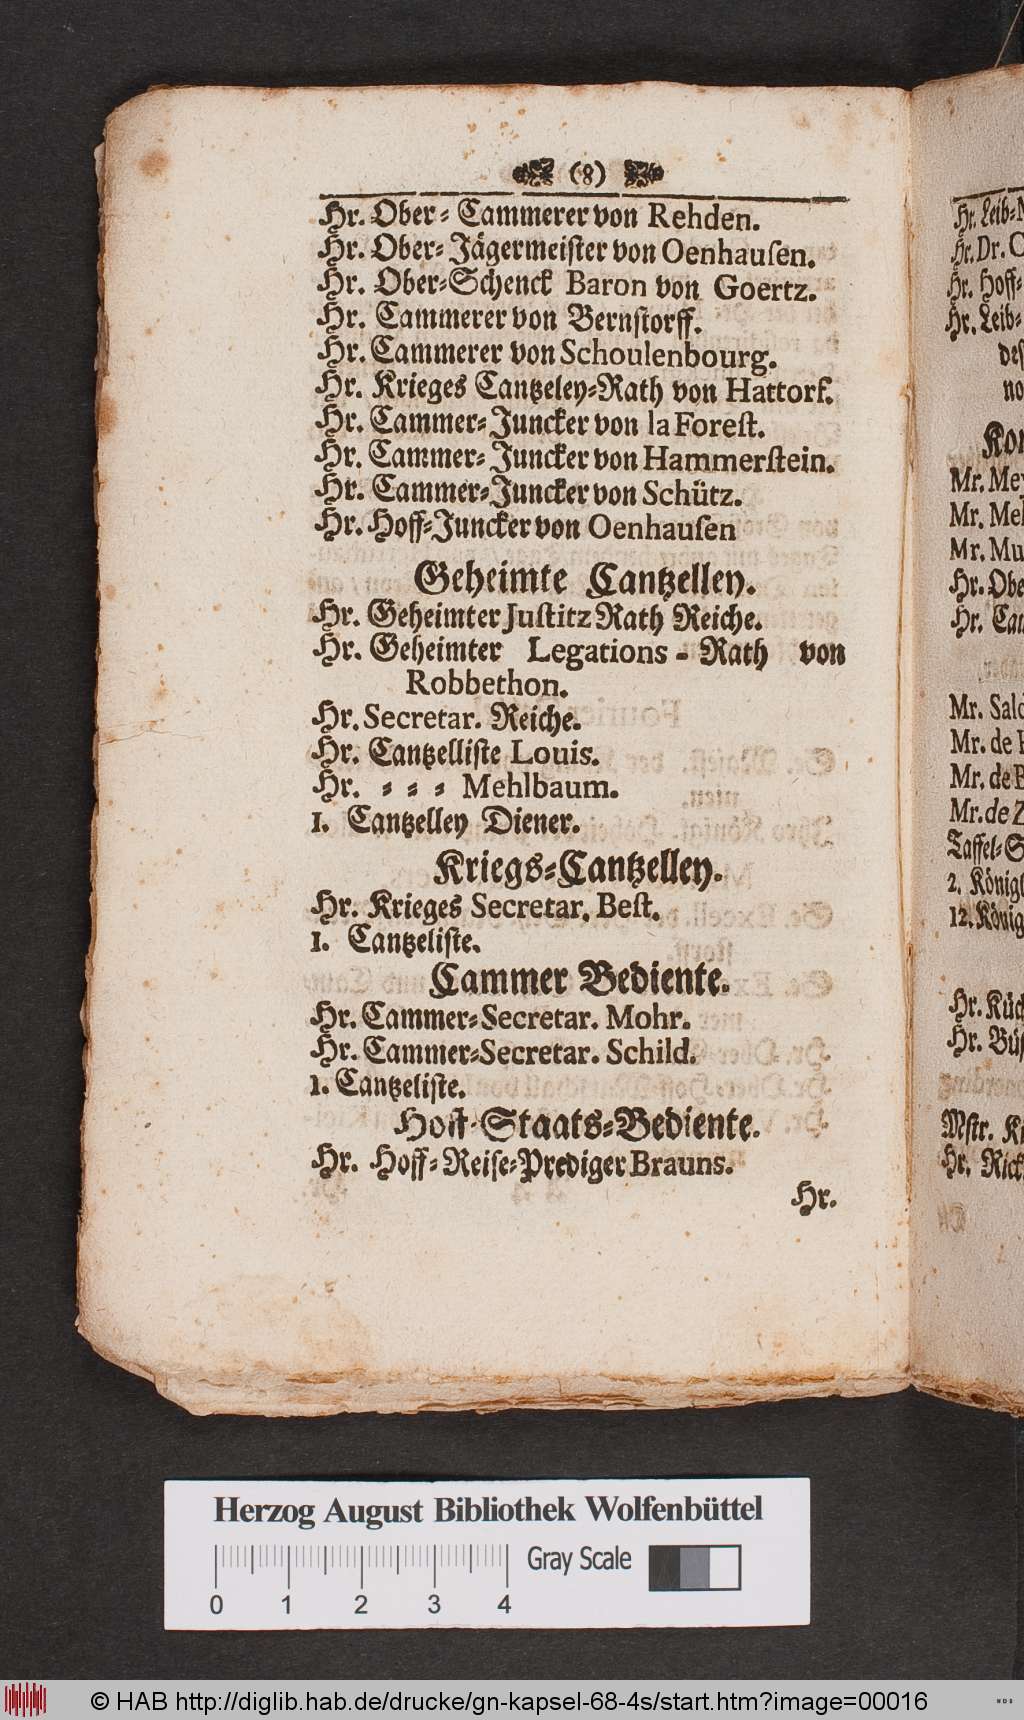 (8)
Hr. Ober-Cammerer von Rehden.
Hr. Ober-Jägermeister von Oenhauſen.
Hr. Ober-Schenck Baron von Goertz.
Hr. Cammerer von Bernstorff.
Hr. Cammerer von Schoulenbourg.
Hr. Krieges Cantzeley-Rath von Hattorf.
Hr. Cammer-Juncker von la Foreſt.
Hr. Cammer-Juncker von Hammerſtein.
Hr. Cammer-Juncker von Schütz.
Hr. Hoff-Juncker von Oenhauſen
Geheimte Cantzelley.
Hr. Geheimter Juſtitz Rath Reiche.
Hr. Geheimter Legations-Rath von
Robbethon.
Hr. Secretar. Reiche.
Hr. Cantzelliſte Louis.
Hr. - - - Mehlbaum.
1. Cantzelley Diener.
Kriegs-Cantzelley.
Hr. Krieges Secretar. Beſt.
1. Cantzeliſte.
Cammer Bediente.
Hr. Cammer-Secretar. Mohr.
Hr. Cammer-Secretar. Schild.
1. Cantzeliſte.
Hoff-Staats-Bediente.
Hr. Hoff-Reiſe-Prediger Brauns.
Hr.
Hr. Leib-
Hr. Dr.
Hr. Hoff-
Hr. Leib-
Mr.
Mr.
Mr.
Hr.
Hr.
Mr.
Mr. de
Mr. de
Mr. de
Taffel-
2.
12.
Hr.
Hr.
Mſtr.
Hr.
Herzog August Bibliothek Wolfenbüttel
Gray Scale
0 1 2 3 4
© HAB http://diglib.hab.de/drucke/gn-kapsel-68-4s/start.htm?image=00016